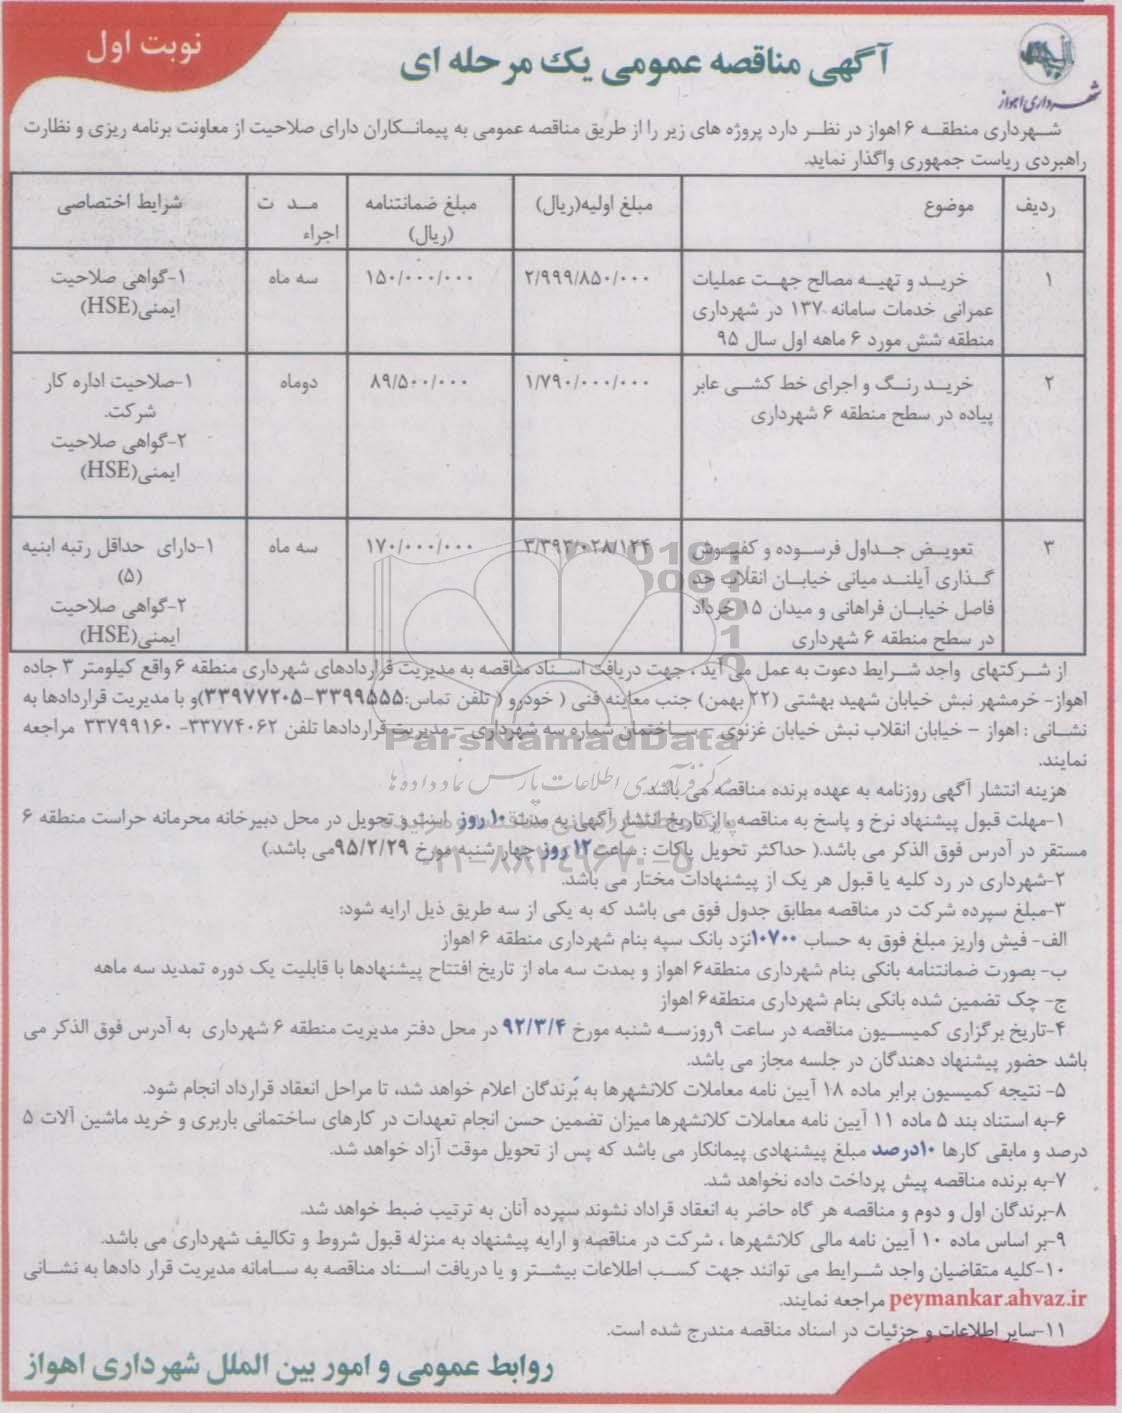 نوبت اول
آگهی مناقصه عمومی یک مرحله ای
شهرداری اهواز
شهرداری منطقه ۶ اهواز در نظر دارد پروژه های زیر را از طریق مناقصه عمومی به پیمانکاران دارای صلاحیت از معاونت برنامه ریزی و نظارت
راهبردی ریاست جمهوری واگذار نماید.
ردیف موضوع مبلغ اولیه(ریال) مبلغ ضمانتنامه (ریال) مدت اجراء شرایط اختصاصی
۱ خرید و تهیه مصالح جهت عملیات ۲/۹۹۹/۸۵۰/۰۰۰ ۱۵۰/۰۰۰/۰۰۰ سه ماه ۱-گواهی صلاحیت
عمرانی خدمات سامانه ۱۳۷ در شهرداری ایمنی(HSE)
منطقه شش مورد ۶ ماهه اول سال ۹۵
۲ خرید رنگ و اجرای خط کشی عابر ۱/۷۹۰/۰۰۰/۰۰۰ ۸۹/۵۰۰/۰۰۰ دوماه ۱-صلاحیت اداره کار
پیاده در سطح منطقه ۶ شهرداری شرکت.
۲-گواهی صلاحیت
ایمنی(HSE)
۳ تعویض جداول فرسوده و کفپوش ۳/۳۹۳/۰۲۸/۱۲۴ ۱۷۰/۰۰۰/۰۰۰ سه ماه ۱-دارای حداقل رتبه ابنیه
گذاری آیلند میانی خیابان انقلاب حد (۵)
فاصل خیابان فراهانی و میدان ۱۵ خرداد ۲-گواهی صلاحیت
در سطح منطقه ۶ شهرداری ایمنی(HSE)
از شرکتهای واجد شرایط دعوت به عمل می آید ، جهت دریافت اسناد مناقصه به مدیریت قراردادهای شهرداری منطقه ۶ واقع کیلومتر ۳ جاده
اهواز- خرمشهر نبش خیابان شهید بهشتی (۲۲ بهمن) جنب معاینه فنی ( خودرو ( تلفن تماس:۳۳۹۹۵۵۵-۳۳۹۷۷۲۰۵)و با مدیریت قراردادها به
نشانی : اهواز – خیابان انقلاب نبش خیابان غزنوی – ساختمان شماره سه شهرداری – مدیریت قراردادها تلفن ۳۳۷۷۴۰۶۲- ۳۳۷۹۹۱۶۰ مراجعه
نمایند.
ParsNamadData
مرکز فرآوری اطلاعات پارس نماد داده ها
هزینه انتشار آگهی روزنامه به عهده برنده مناقصه می باشد.
۱-مهلت قبول پیشنهاد نرخ و پاسخ به مناقصه ها از تاریخ انتشار آگهی به مدت ۱۰ روز است و تحویل در محل دبیرخانه محرمانه حراست منطقه ۶
مستقر در آدرس فوق الذکر می باشد.( حداکثر تحویل پاکات : ساعت ۱۲ روز چهار شنبه مورخ ۹۵/۲/۲۹می باشد.)
۰۲۱-۸۸۳۴۹۶۷۰-۵
۲-شهرداری در رد کلیه یا قبول هر یک از پیشنهادات مختار می باشد.
۳-مبلغ سپرده شرکت در مناقصه مطابق جدول فوق می باشد که به یکی از سه طریق ذیل ارایه شود:
الف- فیش واریز مبلغ فوق به حساب ۱۰۷۰۰نزد بانک سپه بنام شهرداری منطقه ۶ اهواز
ب- بصورت ضمانتنامه بانکی بنام شهرداری منطقه۶ اهواز و بمدت سه ماه از تاریخ افتتاح پیشنهادها با قابلیت یک دوره تمدید سه ماهه
ج- چک تضمین شده بانکی بنام شهرداری منطقه۶ اهواز
۴-تاریخ برگزاری کمیسیون مناقصه در ساعت ۹روزسه شنبه مورخ ۹۲/۳/۴ در محل دفتر مدیریت منطقه ۶ شهرداری به آدرس فوق الذکر می
باشد حضور پیشنهاد دهندگان در جلسه مجاز می باشد.
۵- نتیجه کمیسیون برابر ماده ۱۸ آیین نامه معاملات کلانشهرها به برندگان اعلام خواهد شد، تا مراحل انعقاد قرارداد انجام شود.
۶-به استناد بند ۵ ماده ۱۱ آیین نامه معاملات کلانشهرها میزان تضمین حسن انجام تعهدات در کارهای ساختمانی باربری و خرید ماشین آلات ۵
درصد و مابقی کارها ۱۰درصد مبلغ پیشنهادی پیمانکار می باشد که پس از تحویل موقت آزاد خواهد شد.
۷-به برنده مناقصه پیش پرداخت داده نخواهد شد.
۸-برندگان اول و دوم و مناقصه هر گاه حاضر به انعقاد قراداد نشوند سپرده آنان به ترتیب ضبط خواهد شد.
۹-بر اساس ماده ۱۰ آیین نامه مالی کلانشهرها ، شرکت در مناقصه و ارایه پیشنهاد به منزله قبول شروط و تکالیف شهرداری می باشد.
۱۰-کلیه متقاضیان واجد شرایط می توانند جهت کسب اطلاعات بیشتر و یا دریافت اسناد مناقصه به سامانه مدیریت قرار دادها به نشانی
peymankar.ahvaz.ir مراجعه نمایند.
۱۱-سایر اطلاعات و جزئیات در اسناد مناقصه مندرج شده است.
روابط عمومی و امور بین الملل شهرداری اهواز